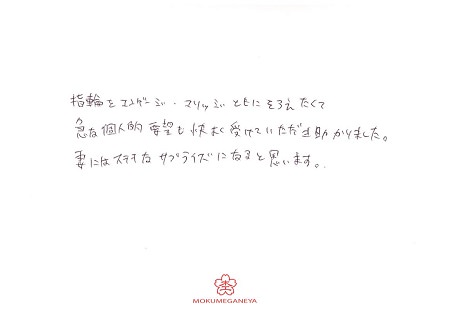 指輪をエンゲージ・マリッジともにそろえたくて
急な個人的要望も快く受けていただき助かりました。
妻にはステキなサプライズになると思います。
MOKUMEGANEYA